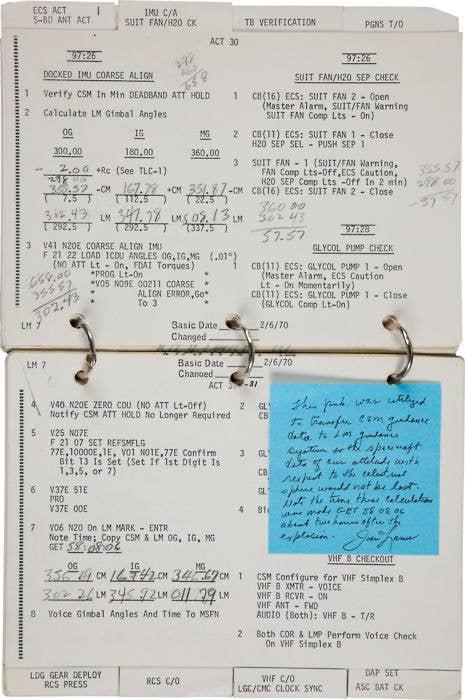 ECS ACT 1
S-BD ANT ACT
IMU C/A
SUIT FAN/H2O CK
TB VERIFICATION
PGNS T/O
ACT 30
97:26
DOCKED IMU COARSE ALIGN
1 Verify CSM In Min DEADBAND ATT HOLD
2 Calculate LM Gimbal Angles
OG IG MG
300.00 180.00 360.00
- 2.00 +Rc (See TLC-1)
298.00
355.57 -CM 167.78 +CM 351.87 -CM
(7.5) (112.5) (22.5)
302.43 LM 347.78 LM 008.13 LM
(292.5) (292.5) (337.5)
3 V41 N20E COARSE ALIGN IMU
F 21 22 LOAD ICDU ANGLES OG,IG,MG (.01°)
(NO ATT Lt - On, FDAI Torques)
*PROG Lt-On *
*V05 N09E 00211 COARSE *
* ALIGN ERROR,Go*
* To 3 *
658.00
355.57
302.43
97:26
SUIT FAN/H2O SEP CHECK
1 CB(16) ECS: SUIT FAN 2 - Open
(Master Alarm, SUIT/FAN Warning
SUIT FAN Comp Lts - On)
2 CB(11) ECS: SUIT FAN 1 - Close
H2O SEP SEL - PUSH SEP 1
3 SUIT FAN - 1 (SUIT/FAN Warning,
FAN Comp Lts -Off,ECS Caution,
H2O SEP Comp Lt -Off In 2 min)
CB(16) ECS: SUIT FAN 2 - Close
355.57
298.00
57.57
360.00
302.43
57.57
97:28
GLYCOL PUMP CHECK
1 CB(11) ECS: GLYCOL PUMP 1 - Open
(Master Alarm, ECS Caution
Lt - On Momentarily)
CB(11) ECS: GLYCOL PUMP 1 - Close
(GLYCOL Comp Lt-On)
LM 7
Basic Date 2/6/70
Changed
LM 7
Basic Date 2/6/70
Changed
ACT -31
4 V40 N20E ZERO CDU (NO ATT Lt-Off)
Notify CSM ATT HOLD No Longer Required
5 V25 N07E
F 21 07 SET REFSMFLG
77E,10000E,1E, V01 N01E,77E Confirm
Bit 13 Is Set (Set If 1st Digit Is
1,3,5, or 7)
6 V37E 51E
PRO
V37E 00E
7 V06 N20 On LM MARK - ENTR
Note Time; Copy CSM & LM OG, IG, MG
GET 58:08:06
OG IG MG
CM CM CM
302 26 LM 345 92 LM 011 79 LM
8 Voice Gimbal Angles And Time To MSFN
2
CB
3
CB
4
This pub. was utilized
to transfer CSM guidance
data to LM guidance
system so the spacecraft
data of our attitude with
respect to the celestial
sphere would not be lost.
Note the time these calculations
were made GET 58 08 06
about two hours after the
explosion.
VHF B CHECKOUT
1 CSM Configure for VHF Simplex B
VHF B XMTR - VOICE
VHF B RCVR - ON
VHF ANT - FWD
AUDIO (Both): VHF B - T/R
2 Both CDR & LMP Perform Voice Check
On VHF Simplex B
LDG GEAR DEPLOY
RCS PRESS
RCS C/O
VHF C/O
LGC/CMC CLOCK SYNC
DAP SET
ASC BAT CK